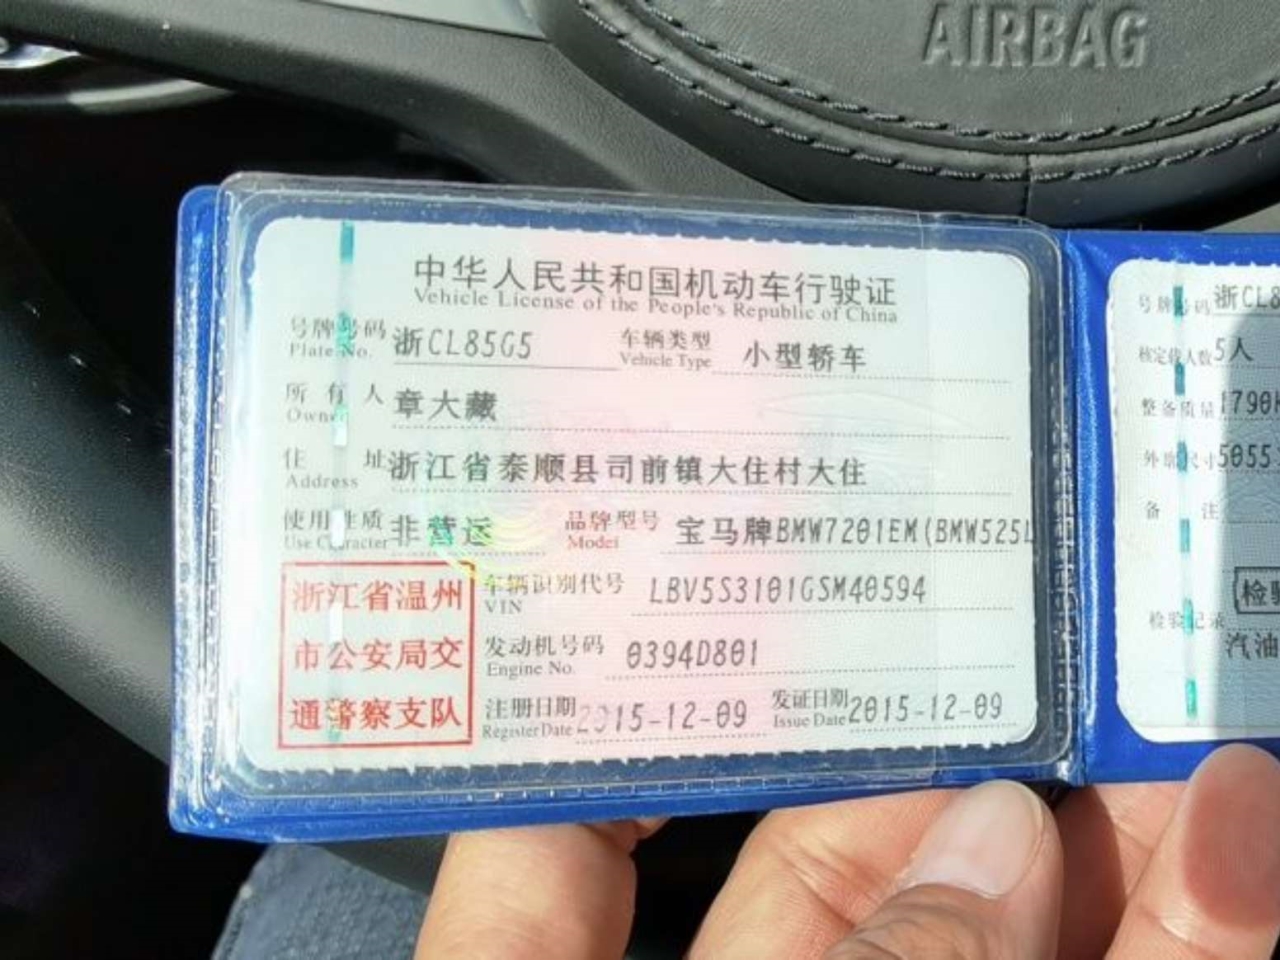 AIRBAG
中华人民共和国机动车行驶证
Vehicle License of the People's Republic of China
号牌号码 浙CL85G5 车辆类型 小型轿车
Plate No. Vehicle Type
所有人 章大藏
Owner
住址 浙江省泰顺县司前镇大住村大住
Address
使用性质 非营运 品牌型号 宝马牌BMW7201EM(BMW525L
Use Character Model
浙江省温州
市公安局交
通警察支队
车辆识别代号 LBV5S3101GSM40594
VIN
发动机号码 0394D801
Engine No.
注册日期 2015-12-09 发证日期 2015-12-09
Register Date Issue Date
号牌号码 浙CL8
核定载人数 5人
整备质量 1790
外廓尺寸 5055
备注
检验记录
汽油